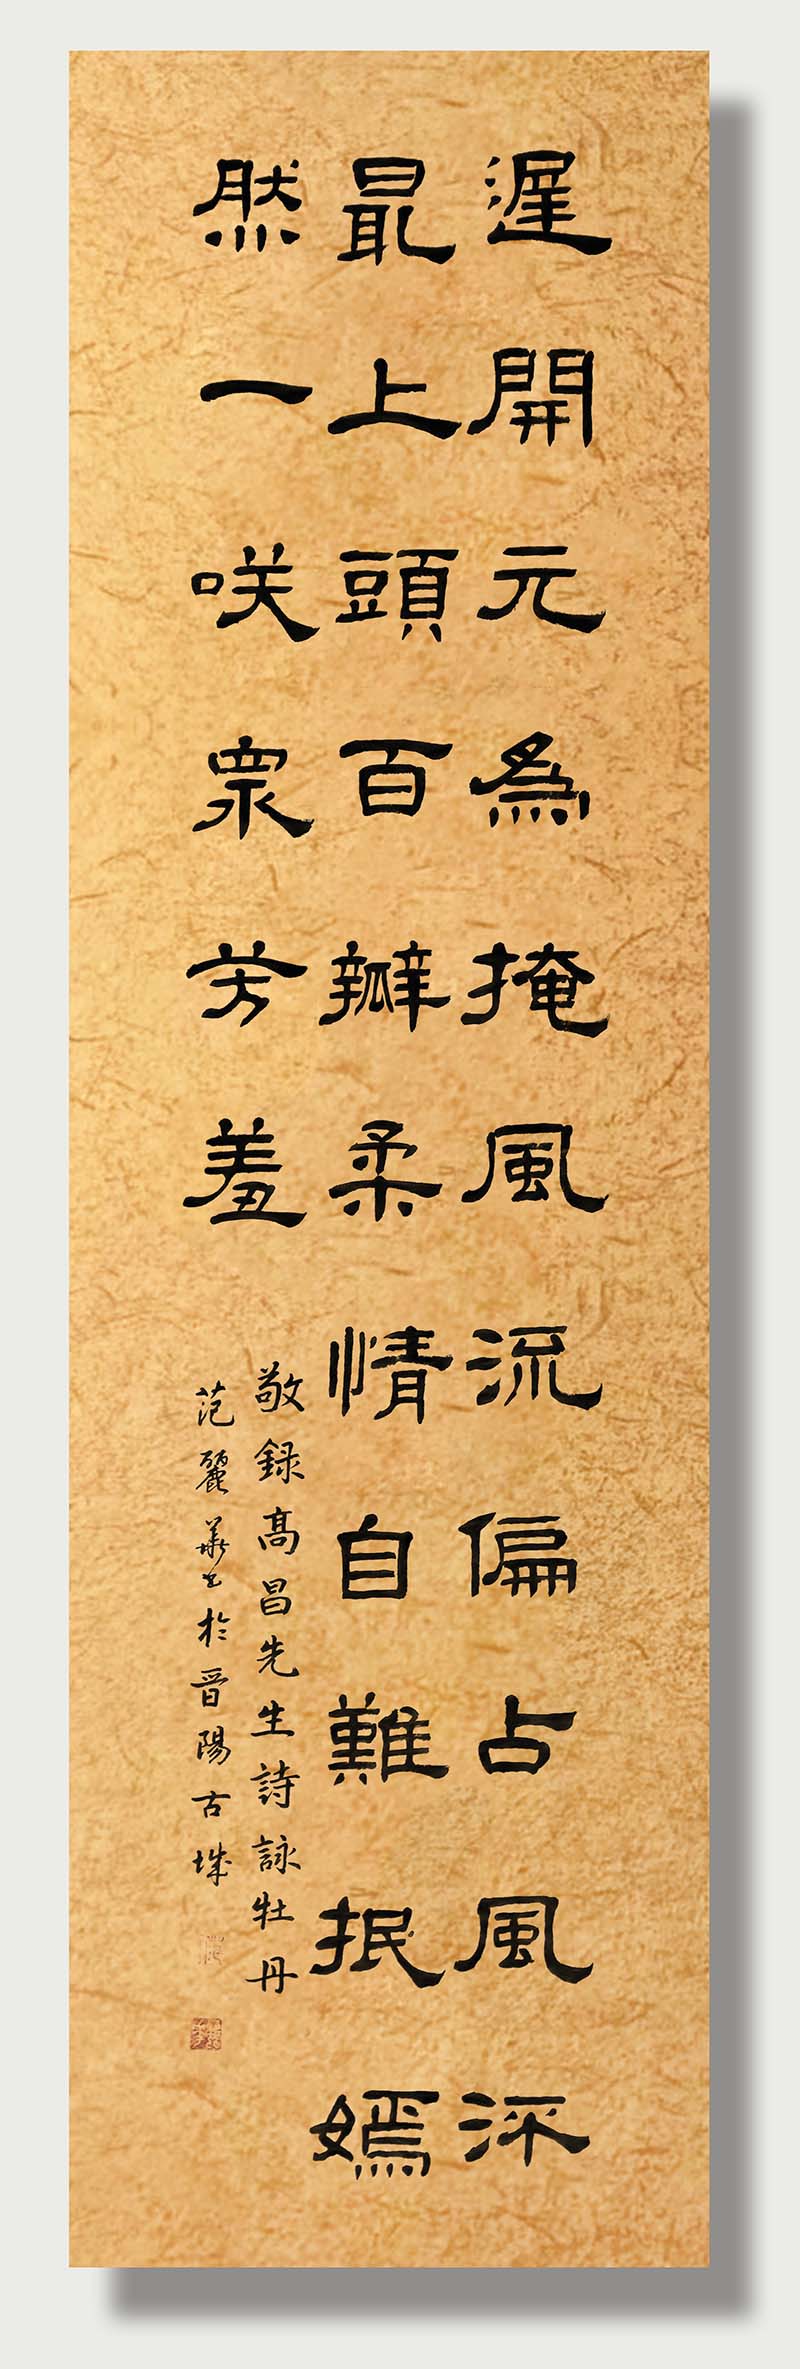 遲開元為掩風流偏占風㳅
最上頭百瓣柔情自難抿嫣
然一咲眾芳羞
敬録高昌先生詩詠牡丹
范麗華書於晉陽古城